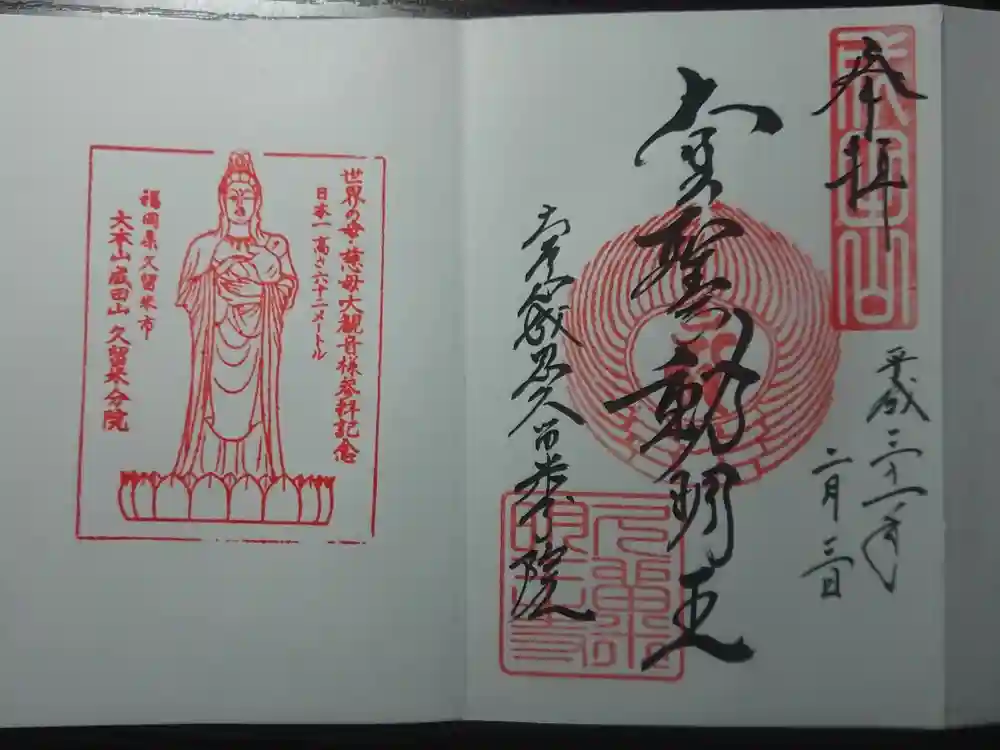 奉拝
成田山
平成三十一年
二月三日
聖不動明王
大本山成田山久留米分院
世界の母・慈母大観音様参拝記念
日本一高さ六十二メートル
福岡県久留米市
大本山成田山久留米分院